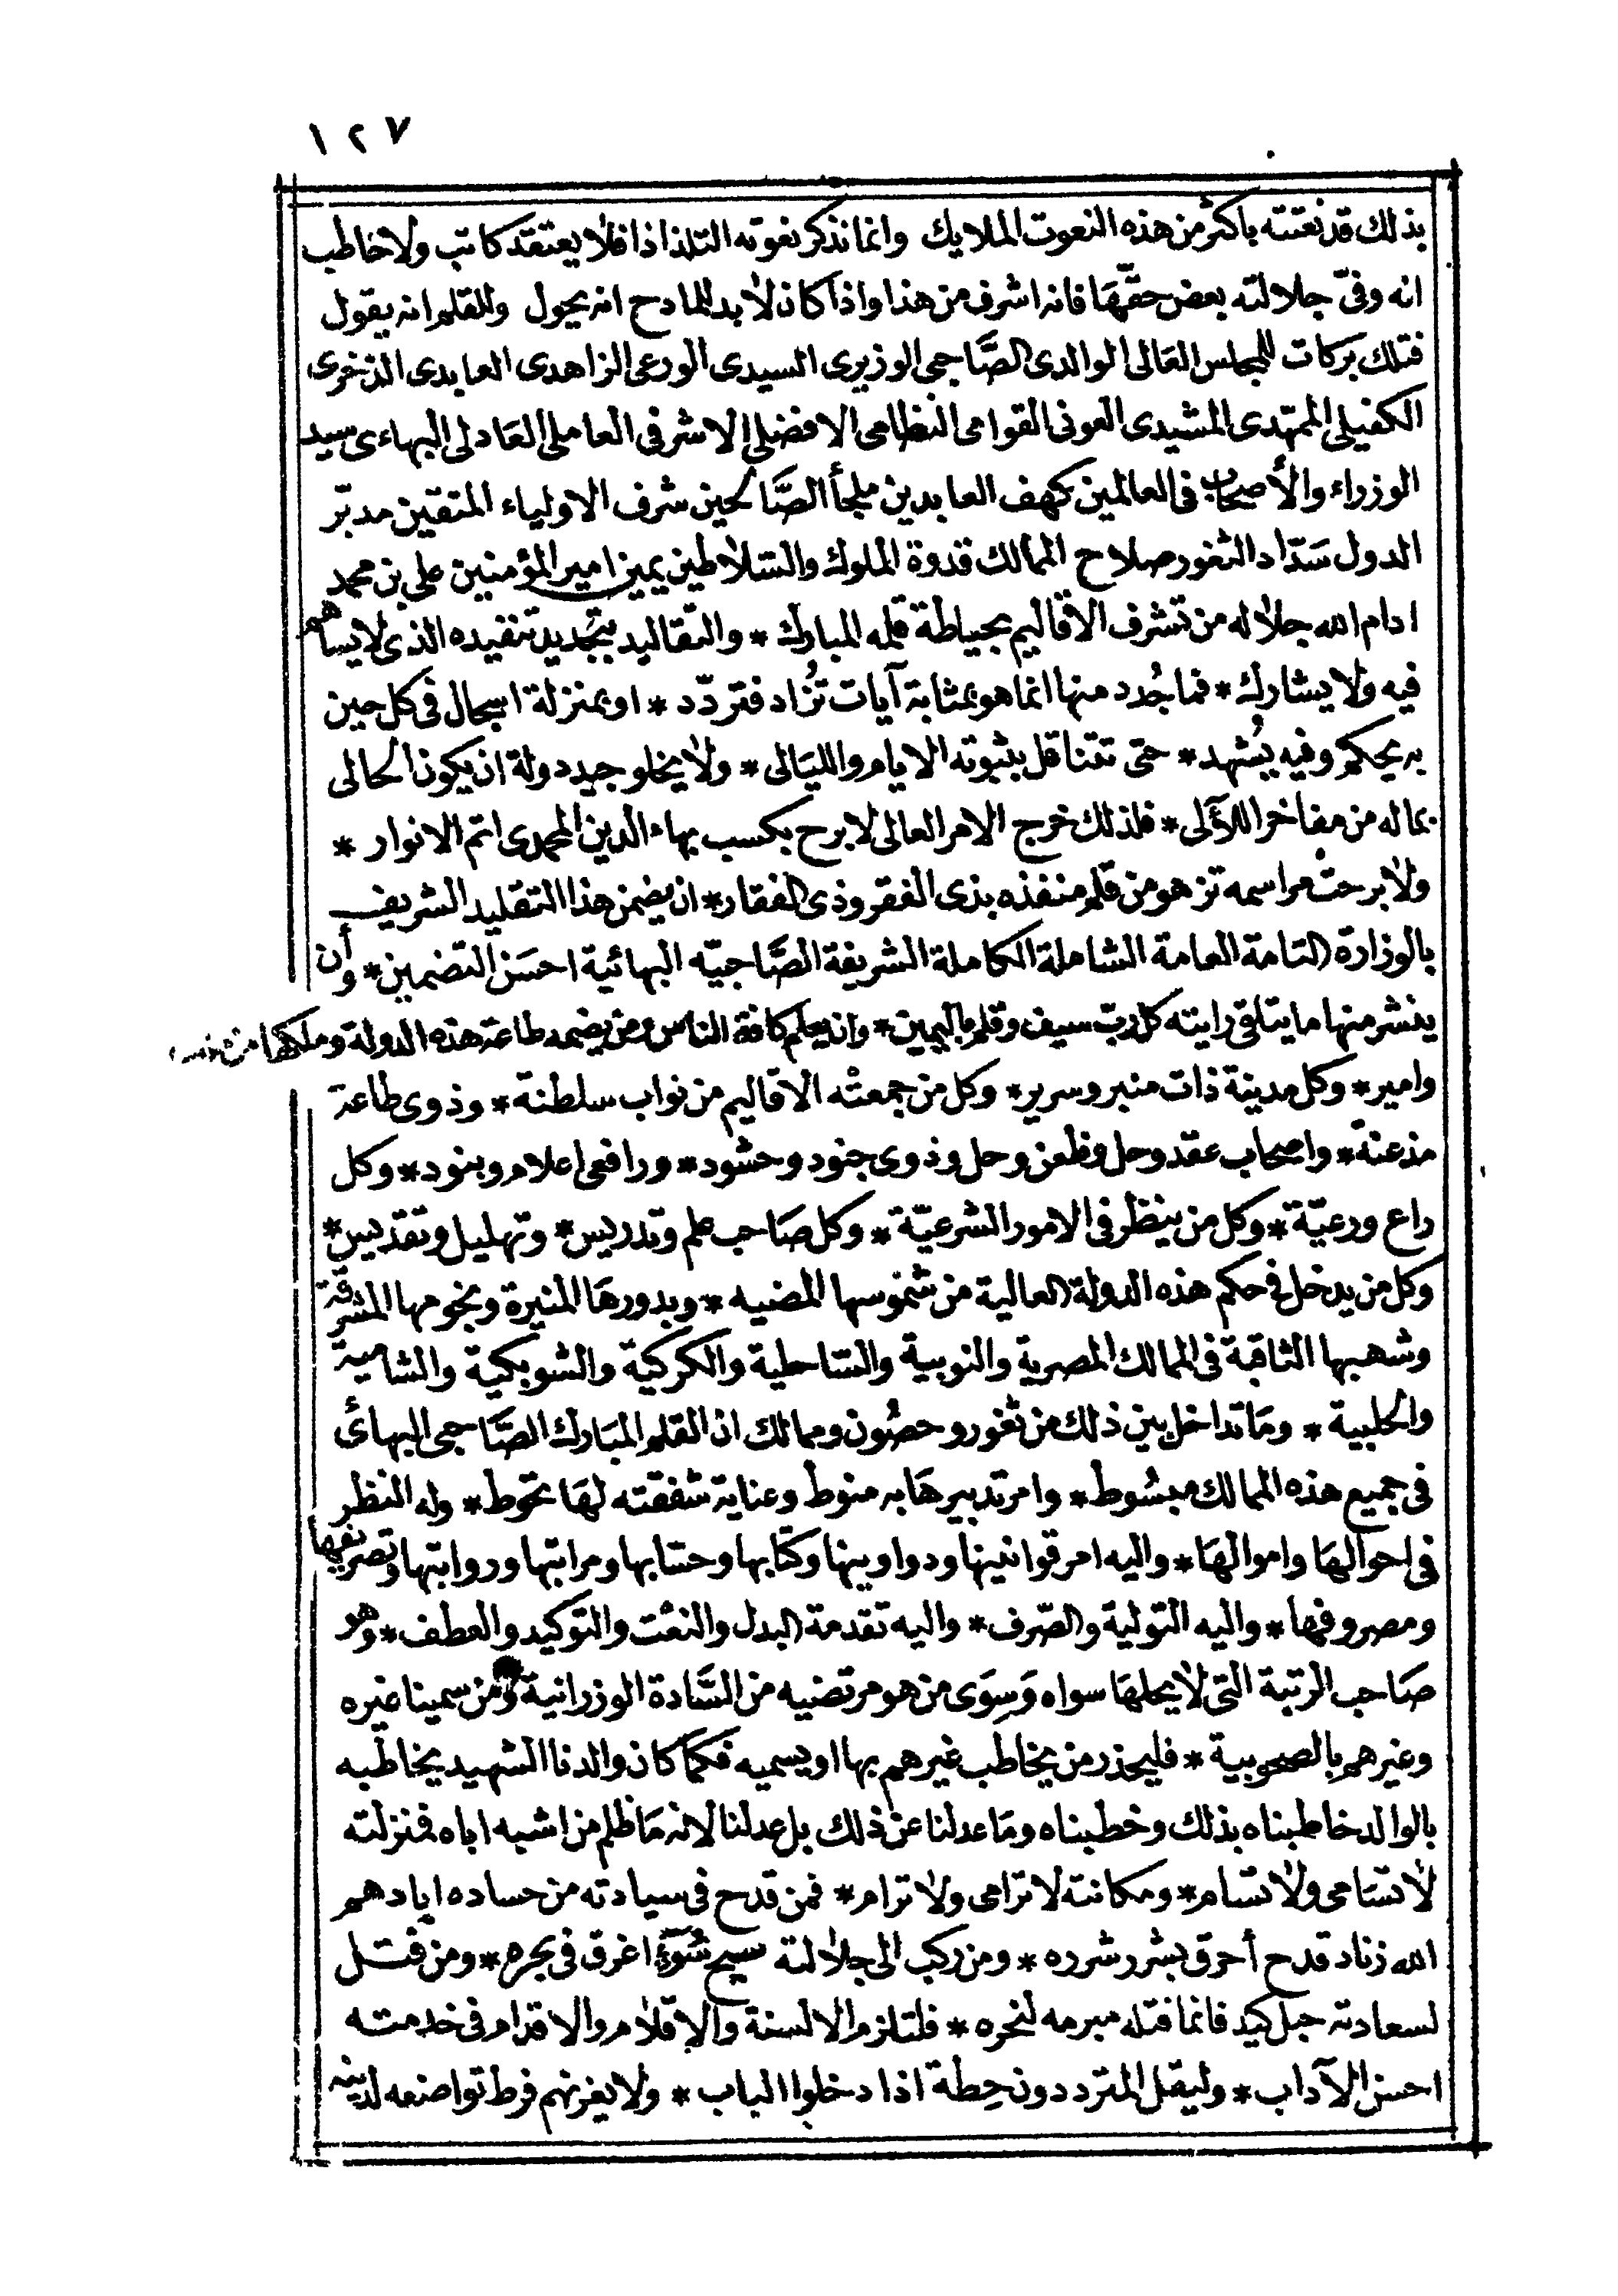 ١٢٧
بذلك قد نعتته باكثر من هذه النعوت الملايك وانما نذكر نعوته التلذاذا فلا يعتقد كاتب ولا خاطب
انه وفىّ جلالته بعض حقّهَا فانه اشرف من هذا واذا كان لا بد للمادح انه يحول وللقلم انه يقول
فتلك بركات المجلس العَالى الوالدى الصَّاحبى الوزيرى السيدى الورعى الزاهدى العابدى الذخرى
الكفيلى الممهّدى المشيدى العونى القوامى النظامى الافضلى الاشرفى العاملى العَادلى البهاءى سيد
الوزراء والأصحاب فى العالمين كهف العابدين ملجأ الصَّالحين شرف الاولياء المتقين مدبّر
الدول سَدّاد الثغور صلاح الممالك قدوة الملوك والسّلاطين يمين امير المؤمنين على بن محمد
ادام الله جلاله من تشرف الاقاليم بحياطة قلمه المبارك * والتقاليد بتجديد تنفيذه الذى لا يساهم
فيه ولا يشارك * فما جُدد منها انما هو بمثابة آيات تُزاد فتردّد * او بمنزلة اسجال فى كل حين
به يحكم وفيه يُشهد * حتى تتناقل بثبوته الايام والليَالى * ولا يخلو جيد دولة ان يكون الحالى
بماله من مفاخر اللآلى * فلذلك خرج الامر العالى لا برح يكسب بهاء الدين المحمدى اتم الانوار *
ولا برحتْ مراسمه تزهو من قلم منفذه بذى الفقر وذى الفقار * ان يضمن هذا التقليد الشريف
بالوزارة التامة العامة الشاملة الكاملة الشريفة الصَّاحبيّه البهائية احسَن التضمين * وأن
ينشر منها ما يتلقى رايته كل ربّ سيف وقلم باليمين * وان يعلم كافة الناس ومن يضمه طاعة هذه الدولة وملكها من
وامير * وكل مدينة ذات منبر وسرير * وكل من جمعتْه الاقاليم من نواب سلطنة * وذوى طاعة
مذعنة * واصحاب عقد وحل وظعن وحل وذوى جنود وحشود * ورافعى اعلام وبنود * وكل
راع ورعيّة * وكل من ينظر فى الامور الشرعيّة * وكل صَاحب علم وتدريس * وتهليل وتقديس *
وكل من يدخل فى حكم هذه الدولة العالية من شموسها المضيه * وبدورهَا المنيرة ونجومها المشرقة
وشهبها الثاقبة فى الممالك المصرية والنوبية والسّاحلية والكركية والشوبكية والشامية
والحلبية * ومَا تداخل بين ذلك من ثغور وحصُون وممالك ان القلم المبَارك الصَّاحبى البهائ
فى جميع هذه الممالك مبسُوط * وامر تدبيرهَا به منوط وعناية شفقته لهَا تحوط * وله النظر
فى احوالهَا واموالهَا * واليه امر قوانينها ودواوينها وكتّابها وحسّابها ومراتبها ورواتبها وتصريفها
ومصروفها * واليه التولية والصّرف * واليه تقدمة البدل والنعْت والتوكيد والعطف * وهو
صَاحب الرتبة التى لا يحلهَا سواه وَسِوَى من هو مرتضيه من السَّادة الوزرانية ومن سمينا غيره
وغيرهم بالصحوبية * فليحذر من يخاطب غيرهم بها او يسميه فكما كان والدنا الشهيد يخاطبه
بالوالد خاطبناه بذلك وخطبناه ومَا عدلنا عن ذلك بل عدلنا لانه مَا ظلم من اشبه اباه فمنزلته
لا تسَامى ولا تسام * ومكانته لا ترامى ولا ترام * فمن قدح فى سيادته من حساده اباد هم
الله زناد قدح أحرق بشرر شرره * ومن ركب الى جلالته سيح سُوٓءٍ اغرق فى بحره * ومن فتل
لسعادته حبل كيد فانما فتله مبرمه لنحره * فلتلزم الالسنة والاقلام والاقدام فى خدمته
احسن الآداب * وليقل المترددون حِطة اذا دخلوا الباب * ولا يغرنهم فرط تواضعه لدينه